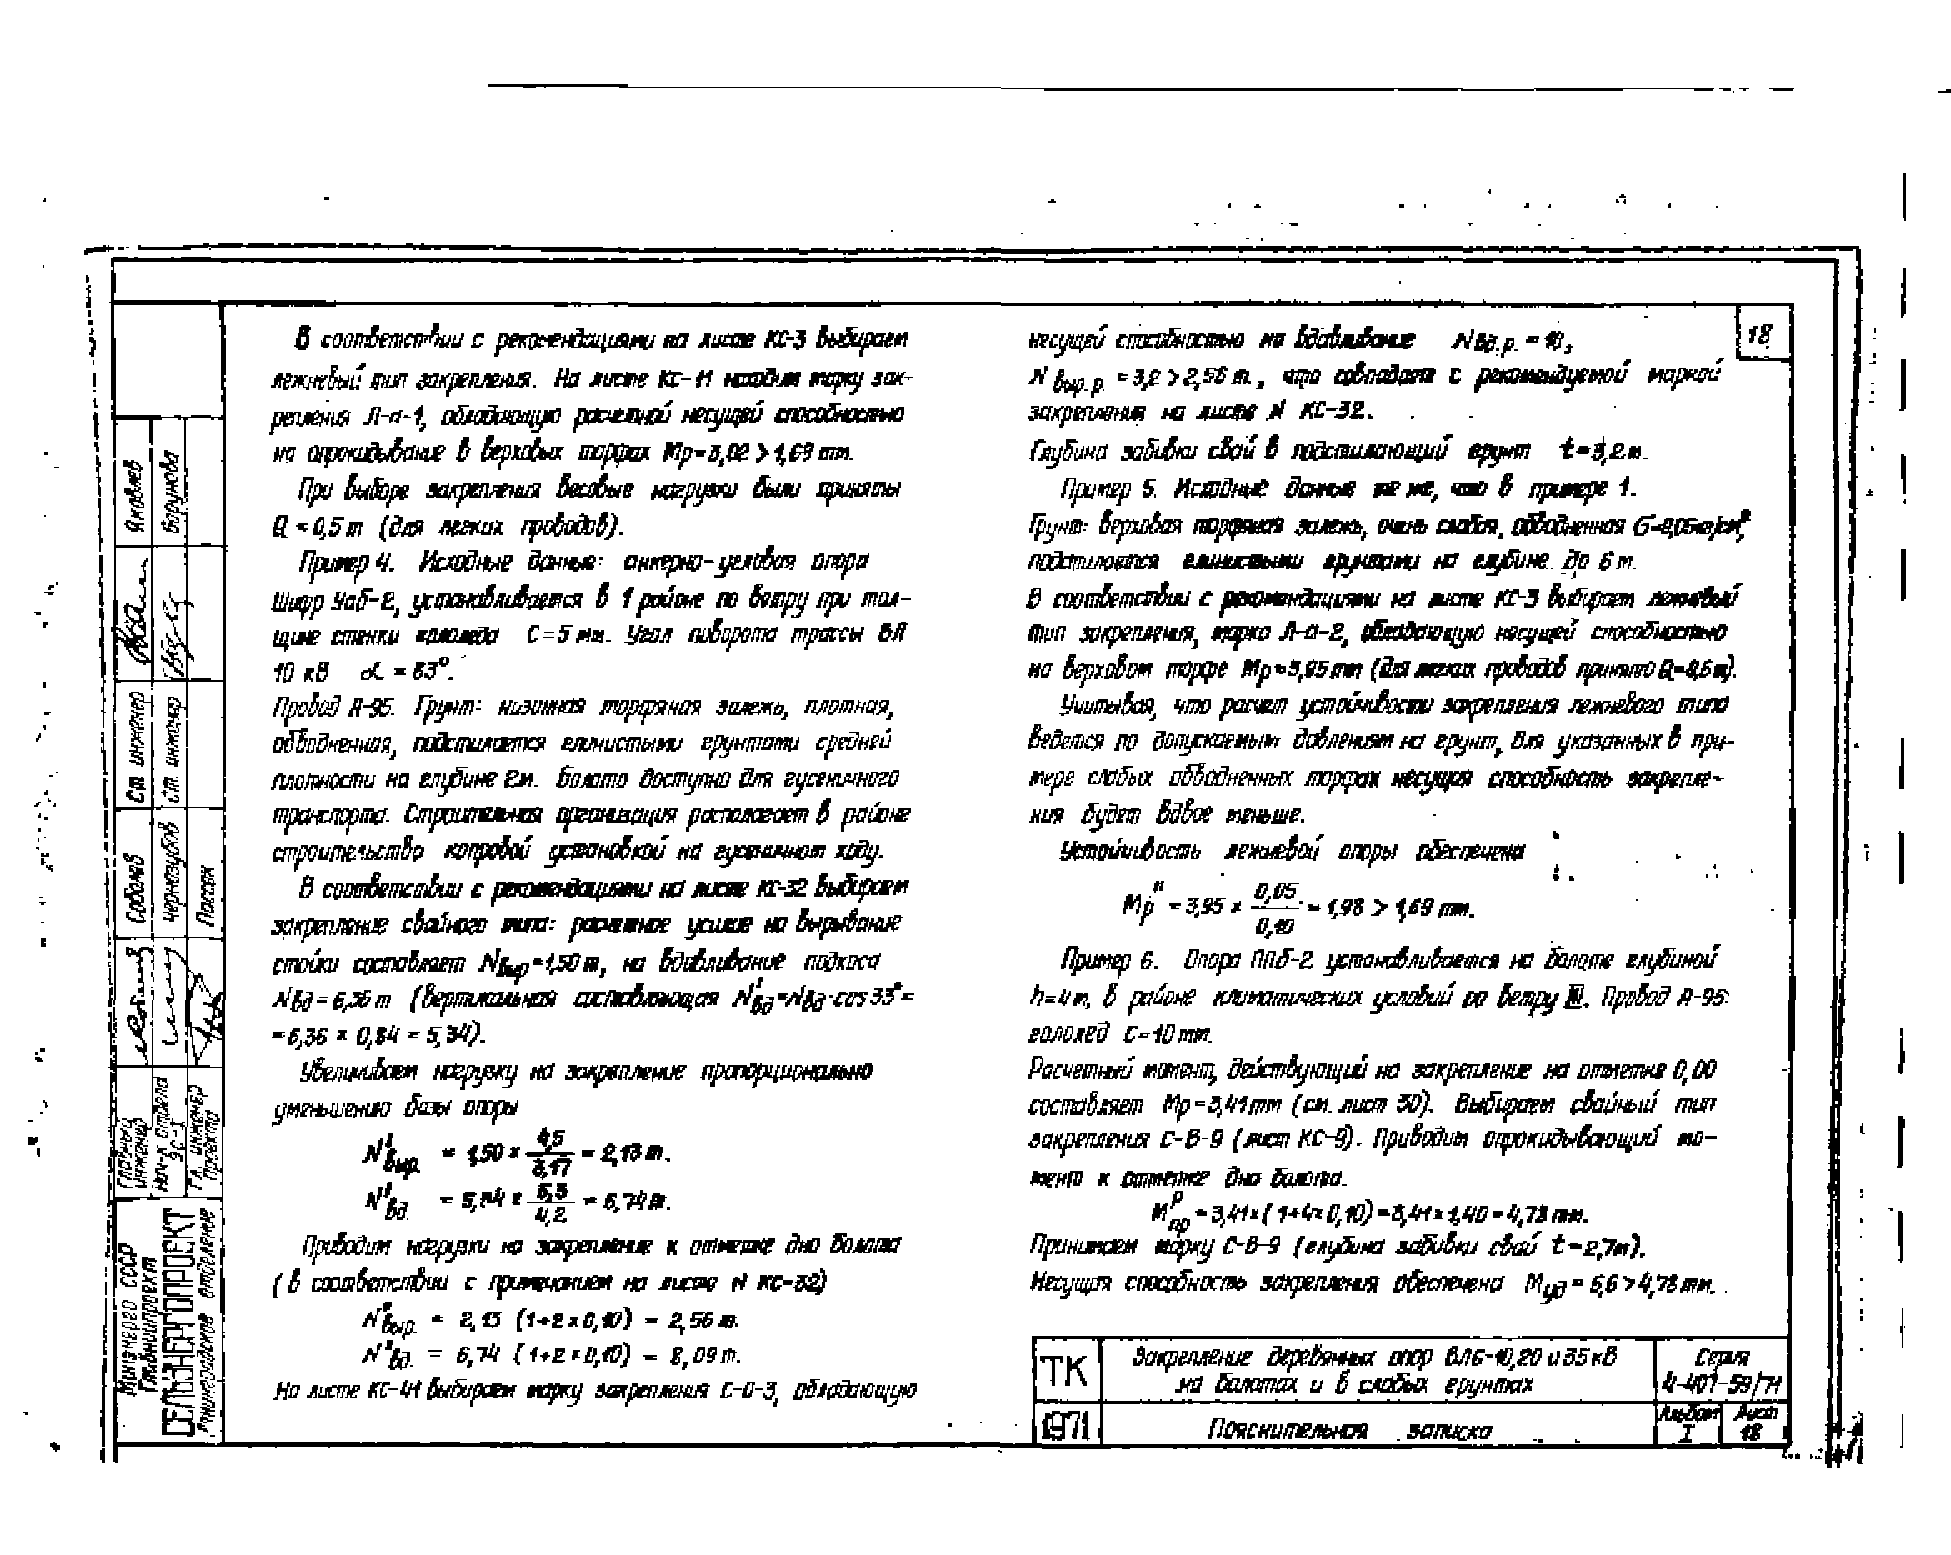 В соответствии с рекомендациями на листе КС-3 выбираем
лежневый тип закрепления. На листе КС-11 находим марку зак-
репления Л-а-1, обладающую расчетной несущей способностью
на опрокидывание в верховых торфах Мр=3,02 > 1,69 тм.
При выборе закрепления весовые нагрузки были приняты
Q = 0,5 т (для легких проводов).
Пример 4. Исходные данные: анкерно-угловая опора
Шифр Уаб-2, устанавливается в 1 районе по ветру при тол-
щине стенки гололеда С=5 мм. Угол поворота трассы ВЛ
10 кВ α = 83°.
Провод А-95. Грунт: низинная торфяная залежь, плотная,
обводненная, подстилается глинистыми грунтами средней
плотности на глубине 2м. Болото доступно для гусеничного
транспорта. Строительная организация располагает в районе
строительства копровой установкой на гусеничном ходу.
В соответствии с рекомендациями на листе КС-32 выбираем
закрепление свайного типа: расчетное усилие на вырывание
стойки составляет Nвыр=1,50 т, на вдавливание подкоса
Nвд = 6,36 т (вертикальная составляющая N'вд=Nвд·cos 33°=
= 6,36 × 0,84 = 5,34).
Увеличиваем нагрузку на закрепление пропорционально
уменьшению базы опоры
N'выр. = 1,50 × 4,5/3,17 = 2,13 т.
N'вд. = 5,34 × 5,3/4,2 = 6,74 т.
Приводим нагрузки на закрепление к отметке дна болота
(в соответствии с примечанием на листе N КС-32)
N"выр. = 2,13 (1+2×0,10) = 2,56 т.
N"вд. = 6,74 (1+2×0,10) = 8,09 т.
На листе КС-41 выбираем марку закрепления С-О-3, обладающую
несущей способностью на вдавливание Nвд.р. = 10,
Nвыр.р = 3,2 > 2,56 т., что совпадает с рекомендуемой маркой
закрепления на листе N КС-32.
Глубина забивки свай в подстилающий грунт t = 3,2 м.
Пример 5. Исходные данные те же, что в примере 1.
Грунт: верховая торфяная залежь, очень слабая, обводненная б=0,05кг/см²,
подстилается глинистыми грунтами на глубине до 6 м.
В соответствии с рекомендациями на листе КС-3 выбирает лежневый
тип закрепления, марка Л-а-2, обладающую несущей способностью
на верховом торфе Мр=3,95 тм (для легких проводов принято Q=0,5 т).
Учитывая, что расчет устойчивости закрепления лежневого типа
ведется по допускаемым давлениям на грунт, для указанных в при-
мере слабых обводненных торфах несущая способность закрепле-
ния будет вдвое меньше.
Устойчивость лежневой опоры обеспечена
Мр" = 3,95 × 0,05/0,10 = 1,98 > 1,69 тм.
Пример 6. Опора ППб-2 устанавливается на болоте глубиной
h=4 м, в районе климатических условий по ветру III. Провод А-95
гололед С=10 мм.
Расчетный момент, действующий на закрепление на отметке 0,00
составляет Мр=3,41 тм (см. лист 30). Выбираем свайный тип
закрепления С-В-9 (лист КС-9). Приводим опрокидывающий мо-
мент к отметке дна болота.
Мпр р = 3,41×(1+4×0,10)=3,41×1,40=4,78 тм.
Принимаем марку С-В-9 (глубина забивки свай t=2,7м).
Несущая способность закрепления обеспечена Муд=5,6>4,78 тм.
18
Яковлев
Борунова
Ст. инженер
Ст. инженер
Соболев
Чернозубов
Лассак
Главный инженер
Нач-к отдела
Гл. инженер проекта
Минэнерго СССР
Главниипроект
СЕЛЬЭНЕРГОПРОЕКТ
отделение
ТК
1971
Закрепление деревянных опор ВЛ6-10,20 и 35 кВ
на болотах и в слабых грунтах
Серия
4-407-59/71
Пояснительная записка
Альбом
I
Лист
18